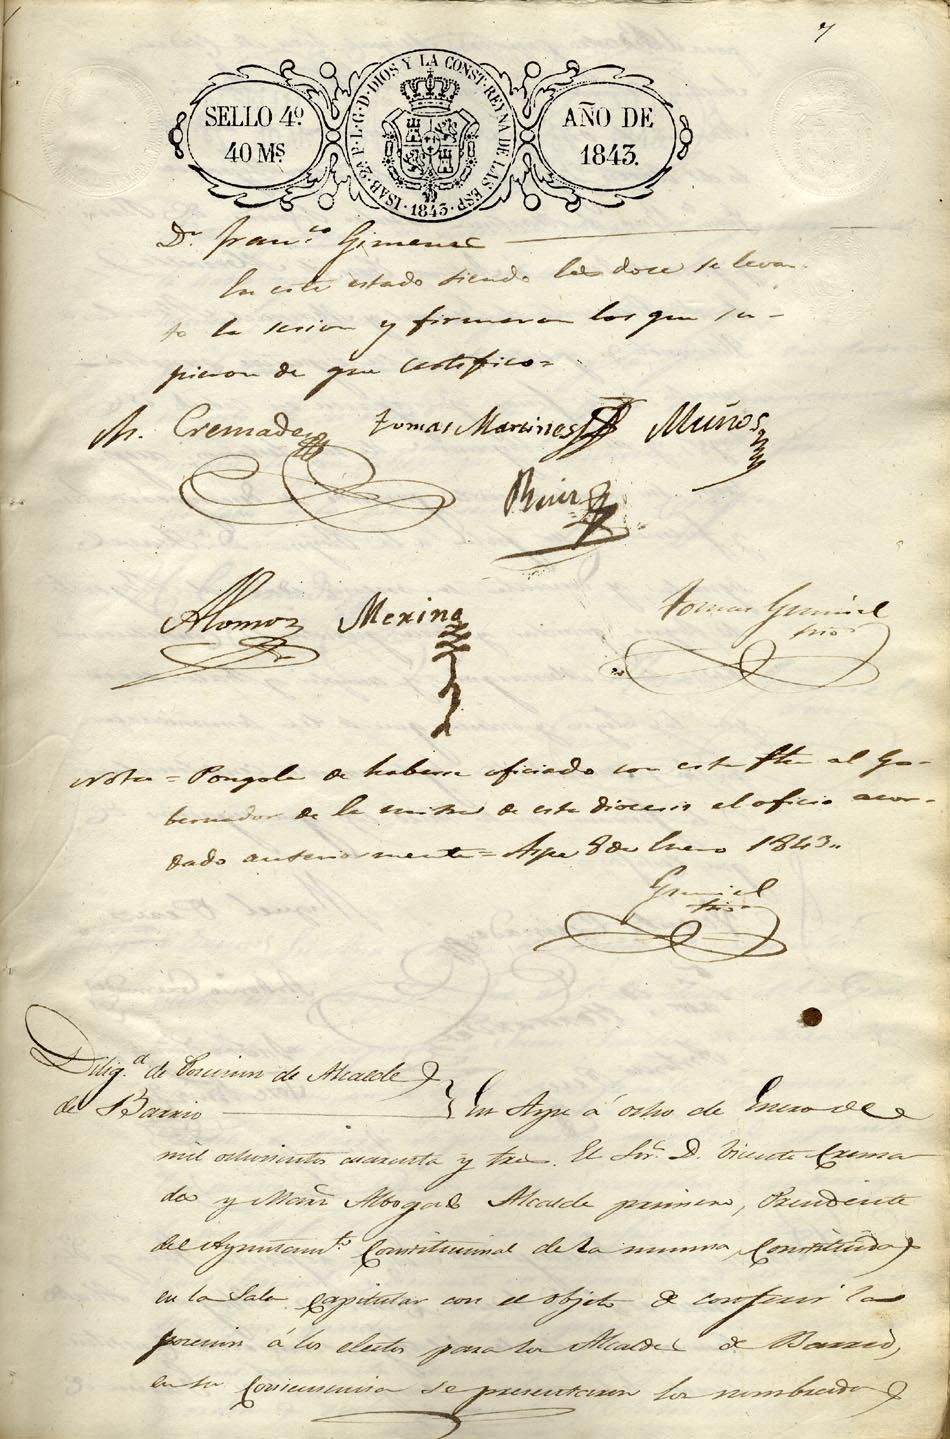 7
SELLO 4º
40 Ms.
ISAB. 2ª P. L. G. D. DIOS Y LA CONST. REYNA DE LAS ESP.
1843.
AÑO DE
1843.
Dr. Fran.co Gimenez
En este estado siendo las doce se levan-
to la sesion y firmaron los que su-
pieron de que certifico=
Cremades Tomas Martinez Muños
Ruiz
Alonzo Merina
Tomas
srio
Nota = Pongola de haberse oficiado con esta fha al Go-
bernador de la mitra de este diocesis el oficio acor-
dado anteriormente = Aspe 8 de Enero 1843..
srio
Dilig.a de Posesion de Alcalde
de Barrio
En Aspe á ocho de Enero de
mil ochocientos cuarenta y tres. El Sr. D. Vicente Crema-
des y Abogado Alcalde primero, Presidente
del Ayuntam.to Constitucional de la misma, Constituido
en la Sala capitular con el objeto de conferir la
posesion á los electos para la Alcaldia de Barrio,
en su consecuencia se presentaron los nombrados